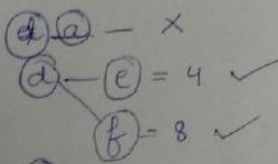 d a — ×
d — e = 4 ✓
f = 8 ✓